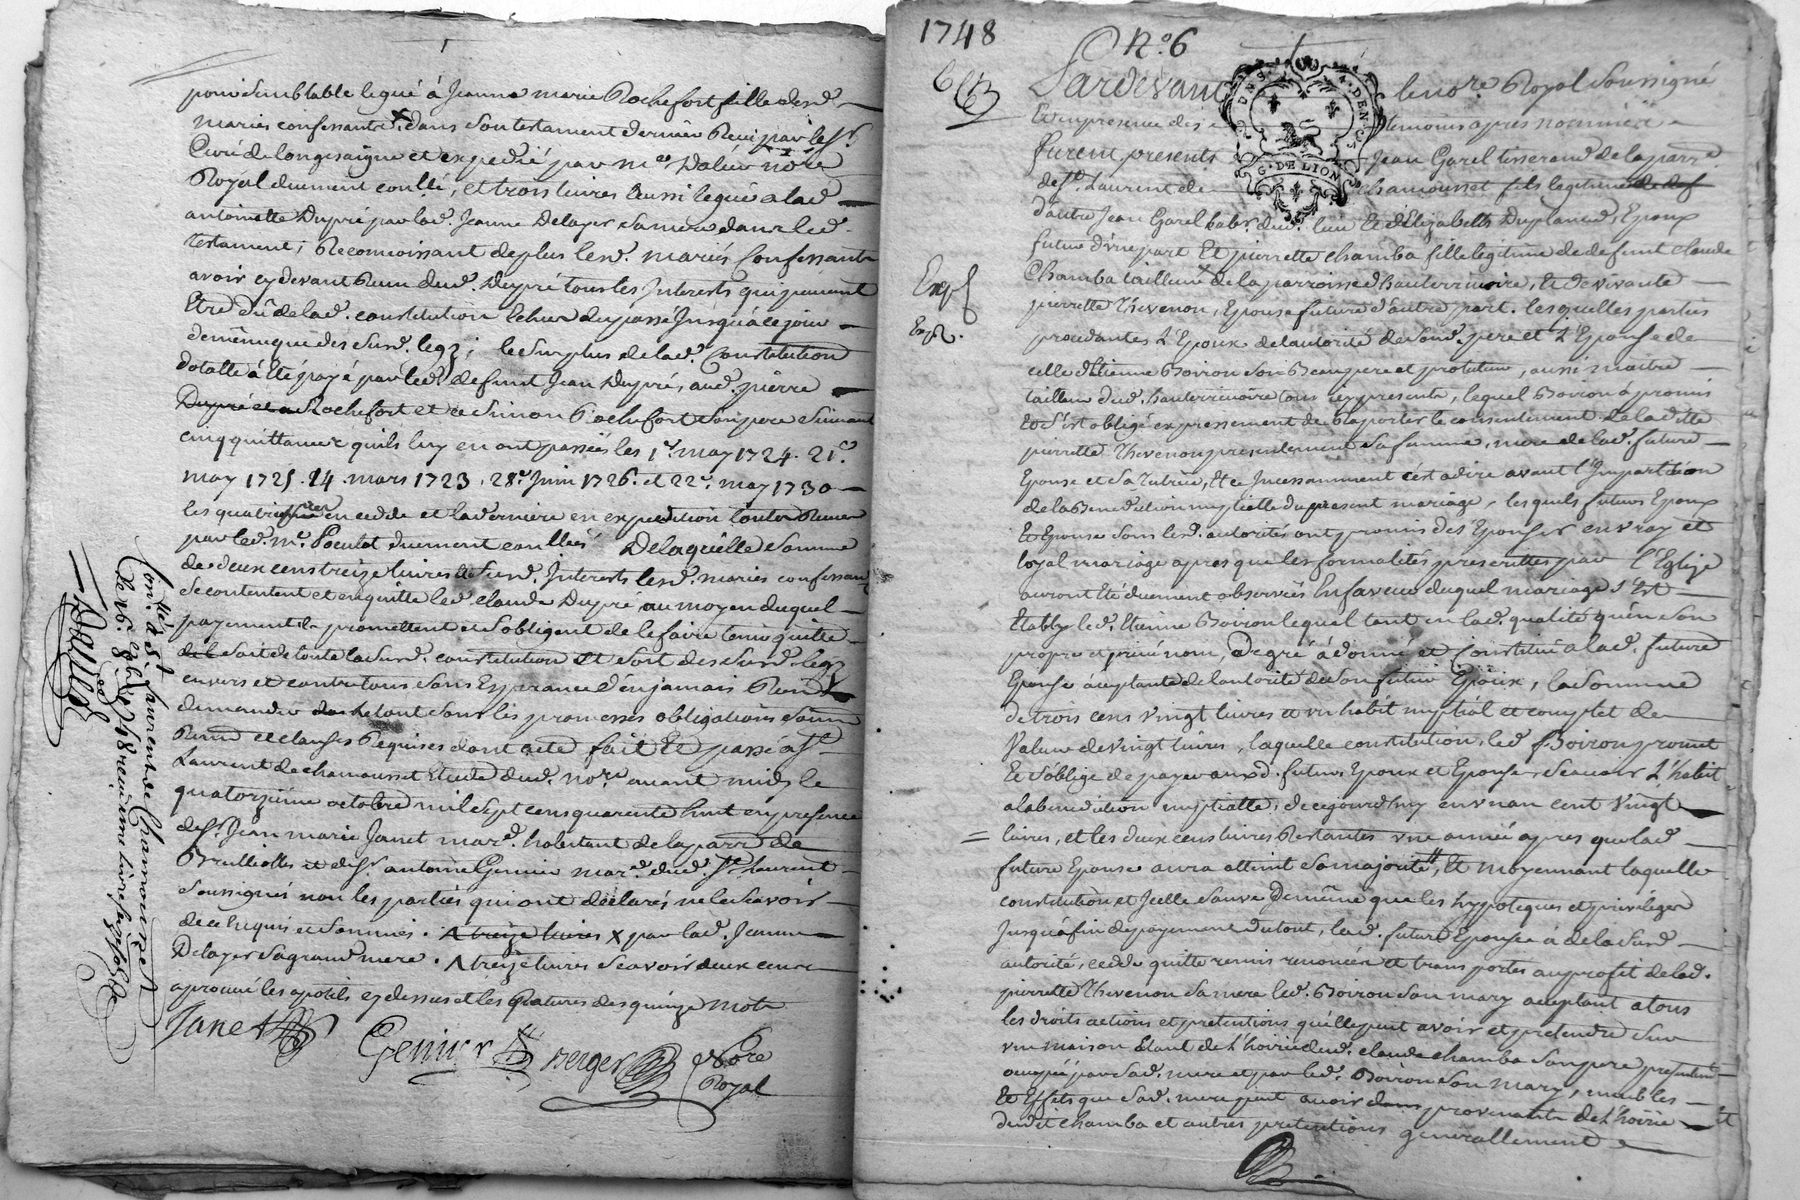 pour semblable legué à Jeanne marie Rochefort fille desd.
mariés confessants, dans son testament dernier Receu par le Sr.
Curé de longesaigne et expedié par me Dalier nore
Royal duement conllé, et trois livres aussi legué a lad
antoinette Dupré par lad. Jeanne Delayer sa mere dans led.
testament; Reconnoissant de plus lesd. mariés Confessants
avoir cy devant Receu dud. Dupré tous les Interests qui peuvent
Etre dû de lad. constitution echus du passé Jusqu'à ce jour
de même que des susd. legz; le surplus de lad. Constitution
dotalle à été payé par led. defunt Jean Dupré, aud. pierre
Dupré et a Rochefort et a Simon Rochefort son pere suivant
cinq quittances quils luy en ont passées les 1er. may 1724. 21e.
may 1725. 14. mars 1723. 28e. Juin 1726. et 22e. may 1730
les quatre en cedde et la derniere en expedition toutes Receues
par led. me. Poculot duement conllées De laquelle somme
de deux cens treize livres et susd. Interests lesd. mariés confessants
se contentent et en quitte led. claude Dupré au moyen duquel
payement ils promettent et s'obligent de le faire tenir quitte
soit de toute la susd. constitution Et soit des susd. legz
envers et contre tous sans Esperance d'en jamais Rien
demander le tout sous les promesses obligations soum
Renon et clauses Requises dont acte fait Et passé a St
Laurent de chamousset Etude dud. nore avant midy le
quatorzieme octobre mil sept cens quarente huit en presence
de Sr. Jean marie Janet mard. habitant de la parre de
Brullioles et de Sr. antoine Genier mard. dud. St. Laurent
soussignés non les parties qui ont déclarés ne le scavoir
de ce Enquis et sommés. A treize livres X par lad. Jeanne
Delayer sa grand mere. A treize livres scavoir deux cens
aprouvé les apostils cy dessus et les Ratures des quinze mots
Janet Genier Berger Nore
Royal
Conllé à St Laurent de Chamousset
le 26. 8bre 1748 reçu
1748 No. 6
Pardevant le nore Royal soussigné
Et en presence des temoins apres nommées
furent presents Jean Garel tisserand de la parre
de St. Laurent de chamousset fils legitime de def
d'autre Jean Garel habt. dud. lieu Et d'Elizabeth Duplan Epoux
futur d'une part Et pierrette chamba fille legitime de defunt claude
Chamba tailleur de la parroisse d'hauterivoire, Et de vivante
pierrette thevenon, Epouse future d'autre part. lesquelles parties
Exp.
Exp.
procedantes L'Epoux de l'autorité de sond. pere et L'Epouse de
celle d'Etienne Boiron son Beaupere et protuteur, aussi maitre
tailleur dud. hauterivoire tous icy presents, lequel Boiron à promis
Et s'est obligé expressement de Raporter le consentement de laditte
pierrette thevenon presentement sa femme, mere de lad. future
Epouse et sa tutrice, Et ce Incessamment c'est a dire avant l'Impartition
de la Benediction nuptialle du present mariage, lesquels futurs Epoux
Et Epouse sous lesd. autorités ont promis de s'Epouser en vray et
loyal mariage apres que les formalités prescrittes par l'Eglize
auront été duement observées En faveur duquel mariage s'Est
Etably led. Etienne Boiron lequel tant en lad. qualité qu'en son
propre et privé nom, De gré à donné et Constitué a lad. future
Epouse acceptante de l'autorité de son futur Epoux, la somme
de trois cens vingt livres et un habit nuptial et complet de
Valeur de vingt livres, laquelle constitution, led Boiron promet
Et s'oblige de payer auxd. futurs Epoux et Epouse, scavoir L'habit
a la benediction nuptialle, de cejourd'huy en un an cent vingt
livres, et les deux cens livres Restantes une année apres que lad
future Epouse aura atteint sa majorité, Et moyennant laquelle
constitution et Icelle sauve De même que les hypoteques et privileges
Jusqu'à fin de payement du tout, lad. future Epouse à de la susd
autorité, cedde quitte remis renoncée et transportée au profit de lad.
pierrette thevenon sa mere led. Boiron son mary acceptant a tous
les droits actions et pretentions qu'elle peut avoir et pretendre sur
une maison Etant de l'hoirie dud. claude chamba son pere presentement
occupée par sad. mere et par led. Boiron son mary, meubles
Et Effets que sad. mere peut avoir dans provenants de l'hoirie
dudit chamba et autres pretentions generallement